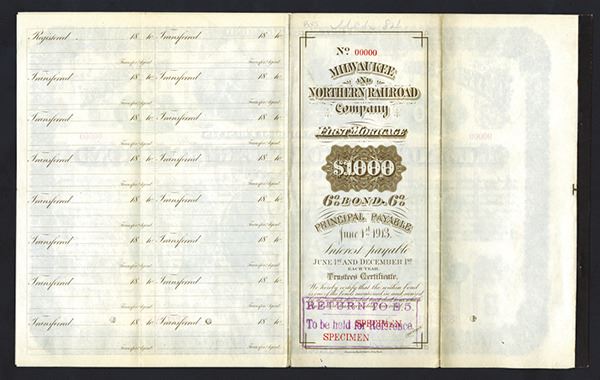 Registered 18 to Transferred 18 to
Transfer Agent. Transfer Agent.
Transferred 18 to Transferred 18 to
Transfer Agent. Transfer Agent.
Transferred 18 to Transferred 18 to
Transfer Agent. Transfer Agent.
Transferred 18 to Transferred 18 to
Transfer Agent. Transfer Agent.
Transferred 18 to Transferred 18 to
Transfer Agent. Transfer Agent.
Transferred 18 to Transferred 18 to
Transfer Agent. Transfer Agent.
Transferred 18 to Transferred 18 to
Transfer Agent. Transfer Agent.
Transferred 18 to Transferred 18 to
Transfer Agent. Transfer Agent.
No. 00000
MILWAUKEE
AND
NORTHERN RAILROAD
Company
FIRST MORTGAGE
$1000
6% BOND. 6%
PRINCIPAL PAYABLE
June 1st 1913.
Interest payable
JUNE 1ST AND DECEMBER 1ST
EACH YEAR.
Trustees Certificate.
We hereby certify that the within bond
RETURN TO B.5
To be held for Reference
SPECIMEN
SPECIMEN